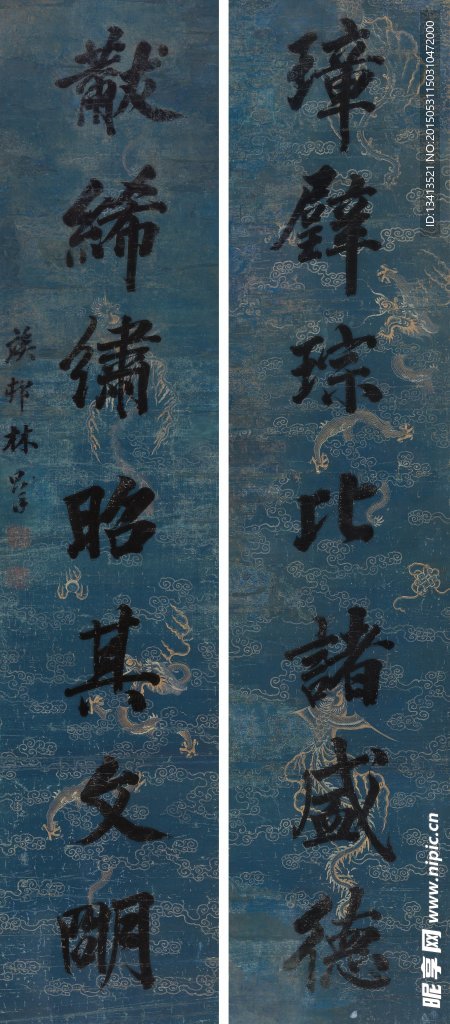 璋璧琮比諸盛德
黻絺繡昭其文明
竢邨林則徐
ID:13413521 NO:20150531150310472000
昵享网 www.nipic.cn